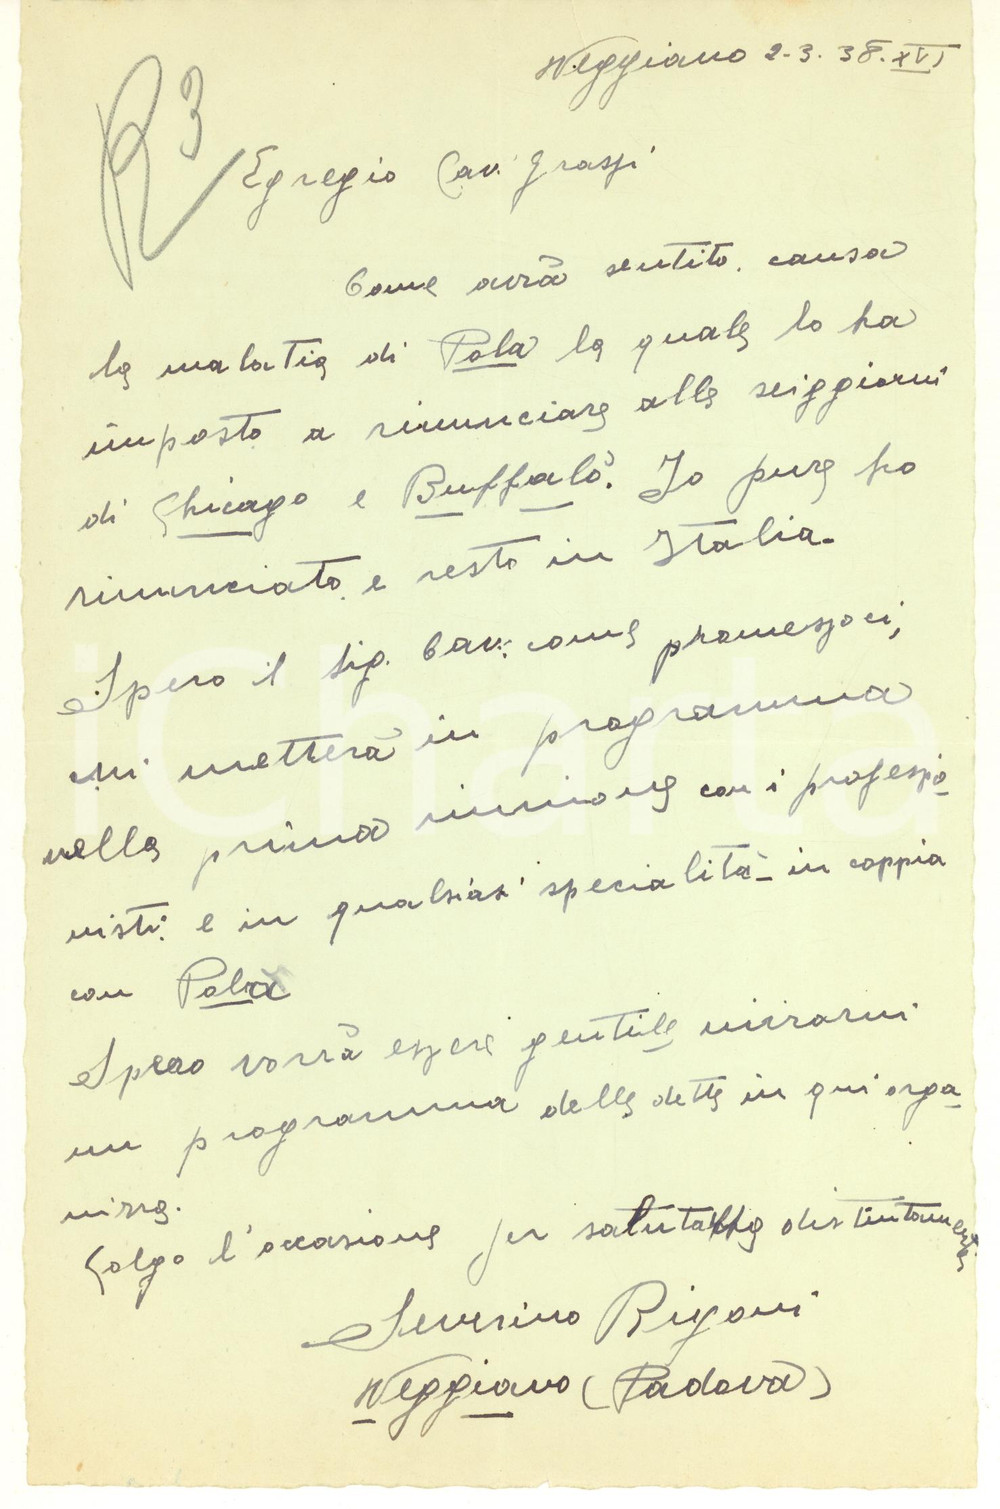 R 3
Veggiano 2-3. 38. XVI
Egregio Cav. Grassi
Come avrà sentito. causa
la malatia di Pola la quale lo ha
imposto a rinunciare alle seiggiorni
di Chicago e Buffalò. Io pure ho
rinunciato e resto in Italia.
Spero il sig. Cav: come promessoci,
mi metterà in programma
nella prima riunione con i professio-
nisti: e in qualsiasi specialità - in coppia
con Pola
Spero vorrà essere gentile inviarmi
un programma delle dette in qui orga-
nizza.
Colgo l'occasione per salutarlo distintamente
Severino Rigoni
Veggiano (Padova)
iCharta